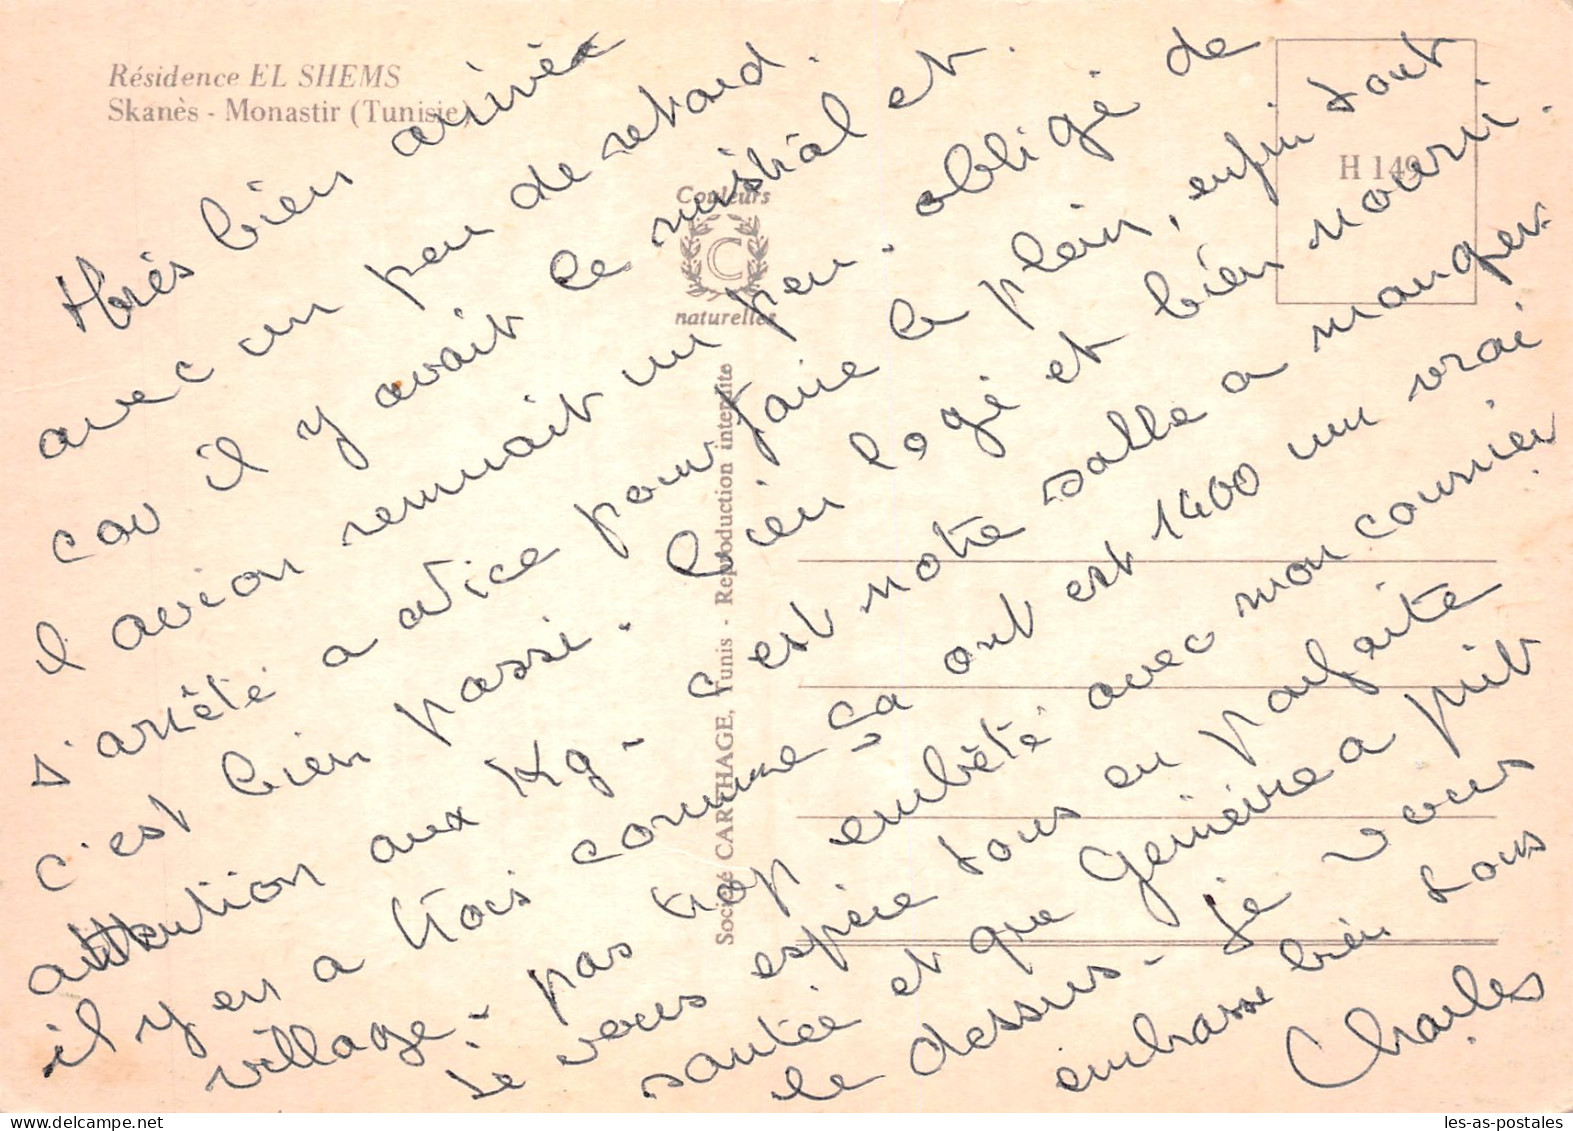 Résidence EL SHEMS
Skanès - Monastir (Tunisie)
H 149
Couleurs
C
naturelles
Société CARTHAGE, Tunis - Reproduction interdite
Très bien arrivée
avec un peu de retard.
car il y avait le mistral et.
l'avion remuait un peu. obligé de
s'arrêté a Nice pour faire le plein, enfin tout
c'est bien passé. bien logé et bien nourri.
attention aux Kg - c est notre salle a manger.
il y en a trois comme ça ont est 1400 un vrai
village. - pas trop embêté avec mon courrier
Je vous espère tous en parfaite
santée et que a prit
le dessus - Je vous
embrasse bien tous
Charles
les-as-postales